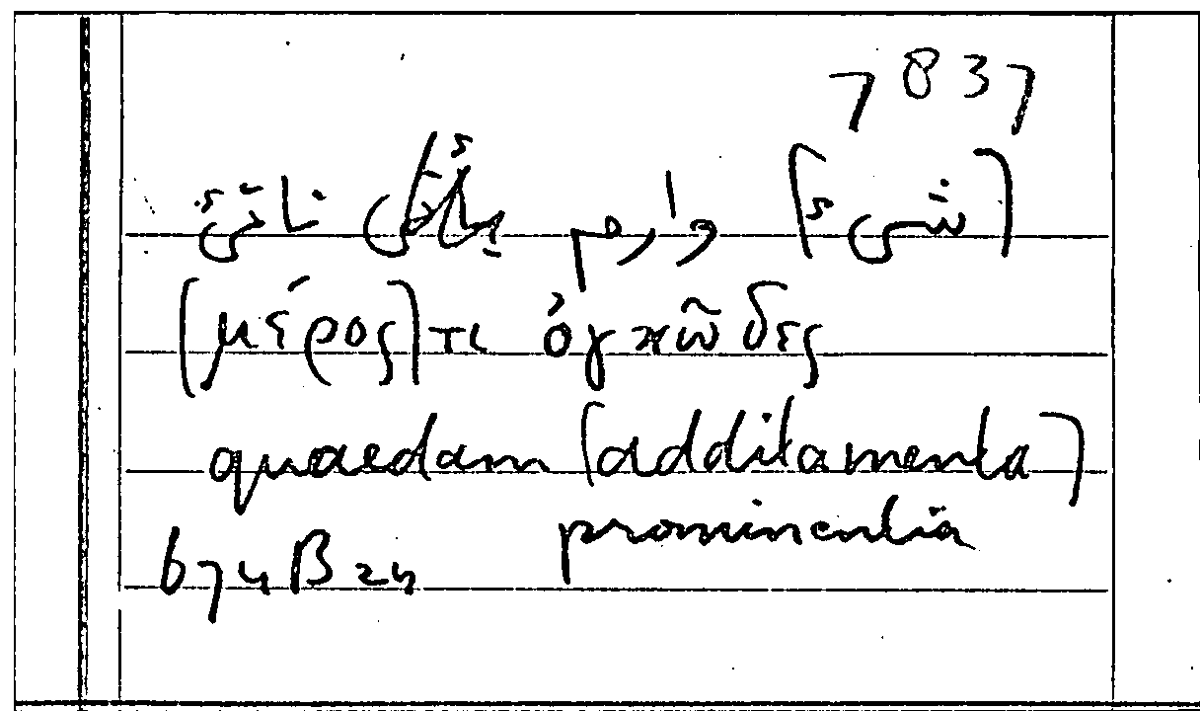 7837
[شىء] وارم ناتىء
[μέρος] τι ὀγκῶδες
quaedam [additamenta]
prominentia
674 B 24